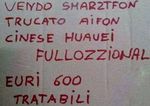 VENDO SMARZTFON
TRUCATO AIFON
CINESE HUAUEI
FULLOZZIONAL
EURI 600
TRATABILI